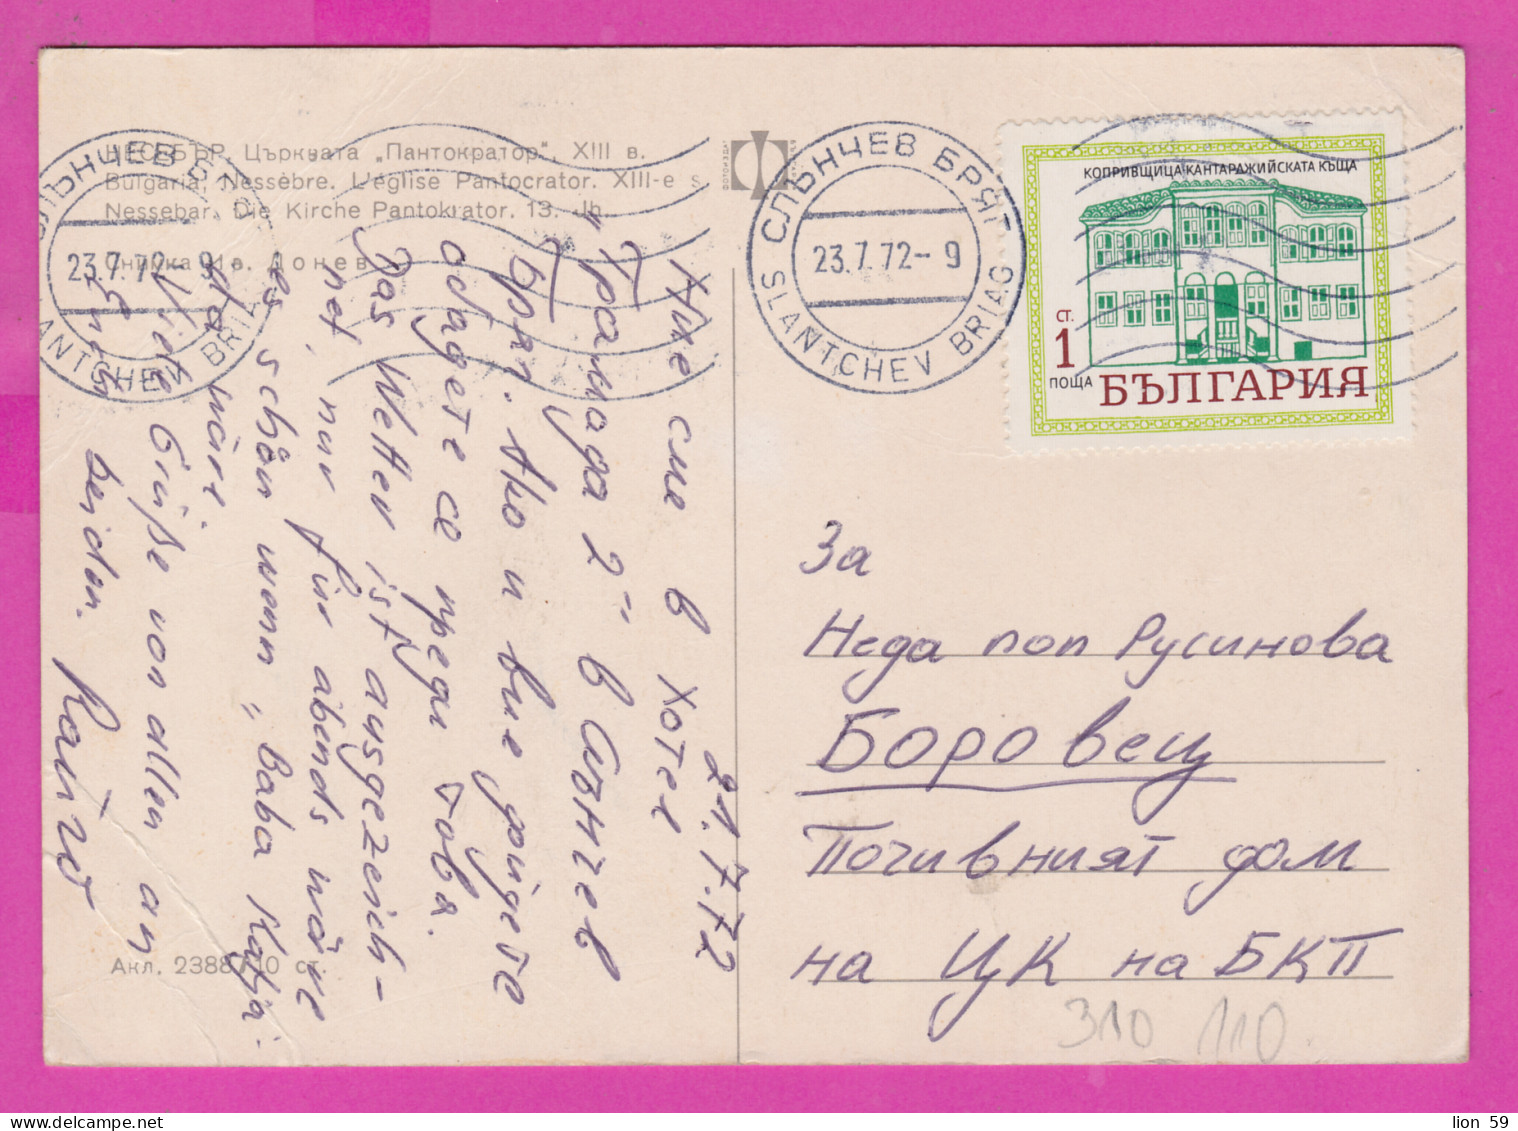 НЕСЕБЪР. Църквата „Пантократор“, XIII в.
Bulgaria, Nessèbre. L'église Pantocrator. XIII-e s.
Nessebar. Die Kirche Pantokrator. 13. Jh.
Снимка Ив. Донев
СЛЪНЧЕВ БРЯГ
23.7.72-9
SLANTCHEV BRIAG
СЛЪНЧЕВ БРЯГ
23.7.72-9
SLANTCHEV BRIAG
КОПРИВЩИЦА·КАНТАРАЖИЙСКАТА КЪЩА
СТ.
1
ПОЩА БЪЛГАРИЯ
21.7.72
Ние сме в хотел
„Трамода 2“ в Слънчев
Бряг. Ако и вие дойдете
обадете се преди това.
Das Wetter ist ausgezeich-
net, nur für abends wäre
es schön wenn „Baba Katja“
da wäre.
Viele Grüße von allen an
Euch beiden. Rainer
За
Неда поп Русинова
Боровец
Почивният дом
на ЦК на БКП
310 110
Акл. 2388/10 ст.
lion 59